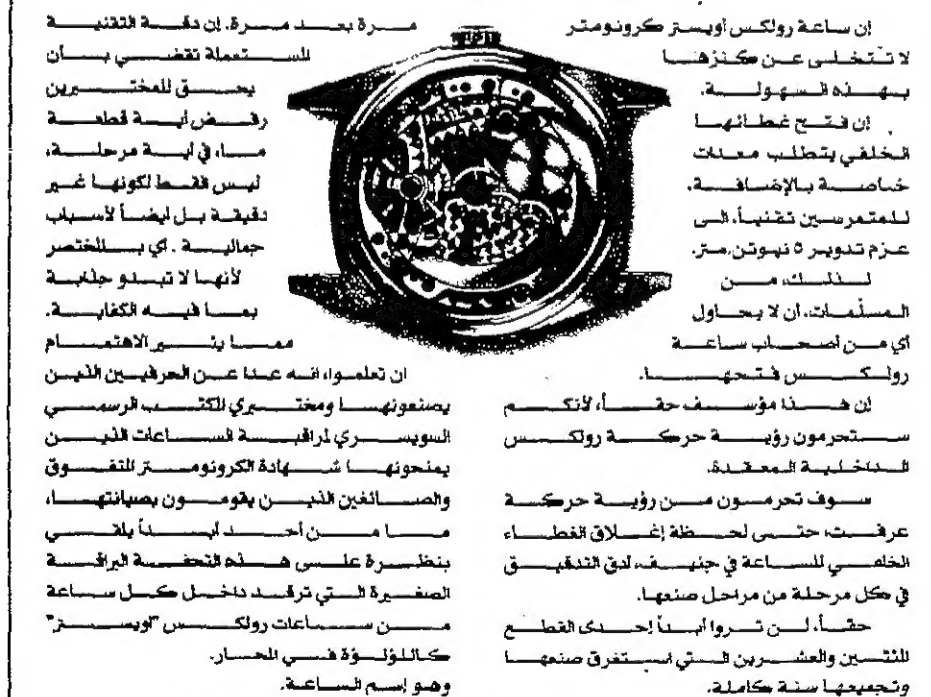 إن ساعة رولكس أويستر كرونومتر
لا تتخلى عن كنزها
بهذه السهولة.
إن فتح غطائها
الخلفي يتطلب معدات
خاصة بالإضافة،
للمتمرسين تقنياً، الى
عزم تدوير ٥ نيوتن.متر.
لذلك، من
المسلّمات، أن لا يحاول
أي من أصحاب ساعة
رولكس فتحها.
إن هذا مؤسف حقاً، لأنكم
ستحرمون رؤية حركة رولكس
الداخلية المعقدة.
سوف تحرمون من رؤية حركة
عرفت، حتى لحظة إغلاق الغطاء
الخلفي للساعة في جنيف، أدق التدقيق
في كل مرحلة من مراحل صنعها.
حقاً، لن تروا أبداً إحدى القطع
المئتين والعشرين التي استغرق صنعها
وتجميعها سنة كاملة.
مرة بعد مرة. إن دقة التقنية
المستعملة تقضي بأن
يحق للمختبرين
رفض أية قطعة
ما، في أية مرحلة،
ليس فقط لكونها غير
دقيقة بل أيضاً لأسباب
جمالية. أي بالمختصر
لأنها لا تبدو جذابة
بما فيه الكفاية.
مما يثير الاهتمام
ان تعلموا، انه عدا عن الحرفيين الذين
يصنعونها ومختبري المكتب الرسمي
السويسري لمراقبة الساعات الذين
يمنحونها شهادة الكرونومتر للتفوق
والصائغين الذين يقومون بصيانتها،
ما من أحد أبداً يلقي
بنظرة على هذه التحفة البراقة
الصغيرة التي ترقد داخل كل ساعة
من ساعات رولكس "أويستر"
كاللؤلؤة في المحار.
وهو إسم الساعة.